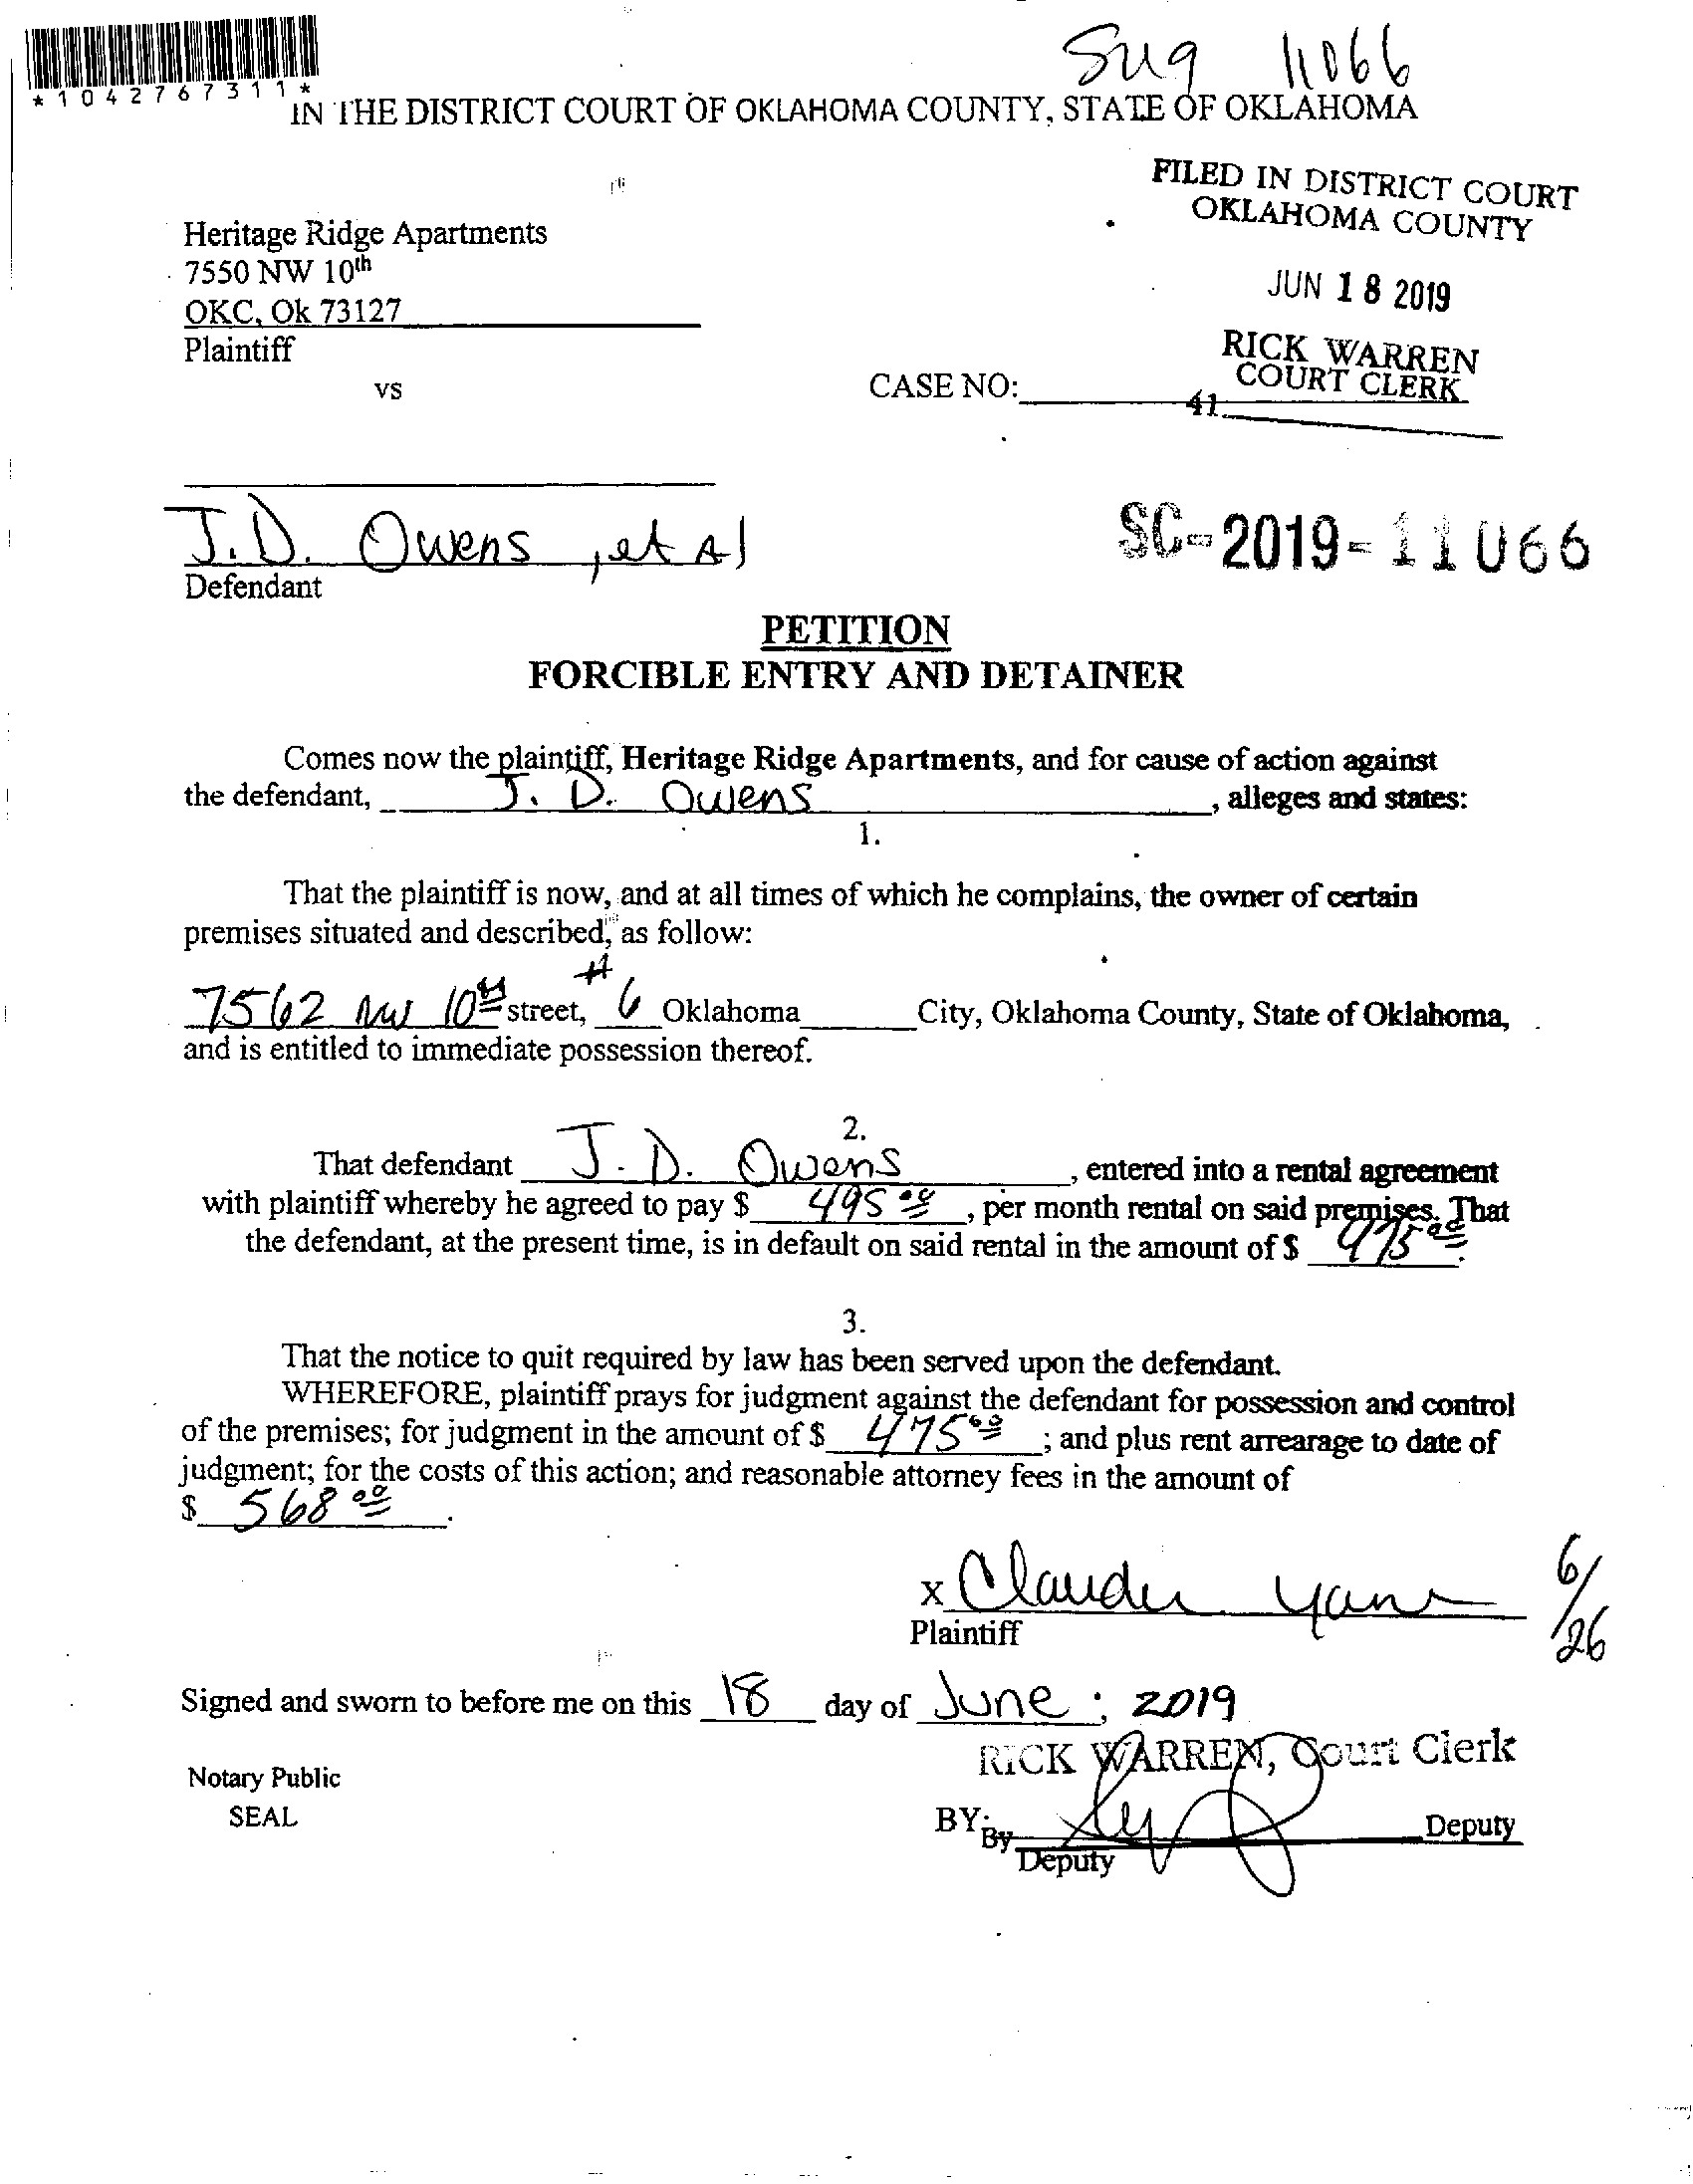 Sug 11066
*1042767311*
IN THE DISTRICT COURT OF OKLAHOMA COUNTY, STATE OF OKLAHOMA
FILED IN DISTRICT COURT
OKLAHOMA COUNTY
JUN 18 2019
RICK WARREN
COURT CLERK
41
Heritage Ridge Apartments
7550 NW 10th
OKC, Ok 73127
Plaintiff
vs
CASE NO:
J.D. Owens, et Al
Defendant
SC-2019-11066
PETITION
FORCIBLE ENTRY AND DETAINER
Comes now the plaintiff, Heritage Ridge Apartments, and for cause of action against
the defendant, J. D. Owens, alleges and states:
1.
That the plaintiff is now, and at all times of which he complains, the owner of certain
premises situated and described, as follow:
7562 NW 10th street, #6 Oklahoma City, Oklahoma County, State of Oklahoma,
and is entitled to immediate possession thereof.
2.
That defendant J. D. Owens, entered into a rental agreement
with plaintiff whereby he agreed to pay $ 495.00, per month rental on said premises. That
the defendant, at the present time, is in default on said rental in the amount of $ 475.00.
3.
That the notice to quit required by law has been served upon the defendant.
WHEREFORE, plaintiff prays for judgment against the defendant for possession and control
of the premises; for judgment in the amount of $ 475.00; and plus rent arrearage to date of
judgment; for the costs of this action; and reasonable attorney fees in the amount of
$ 568.00.
x
Plaintiff
6/26
Signed and sworn to before me on this 18 day of June; 2019
RICK WARREN, Court Clerk
Notary Public
SEAL
BY: Deputy
By
Deputy